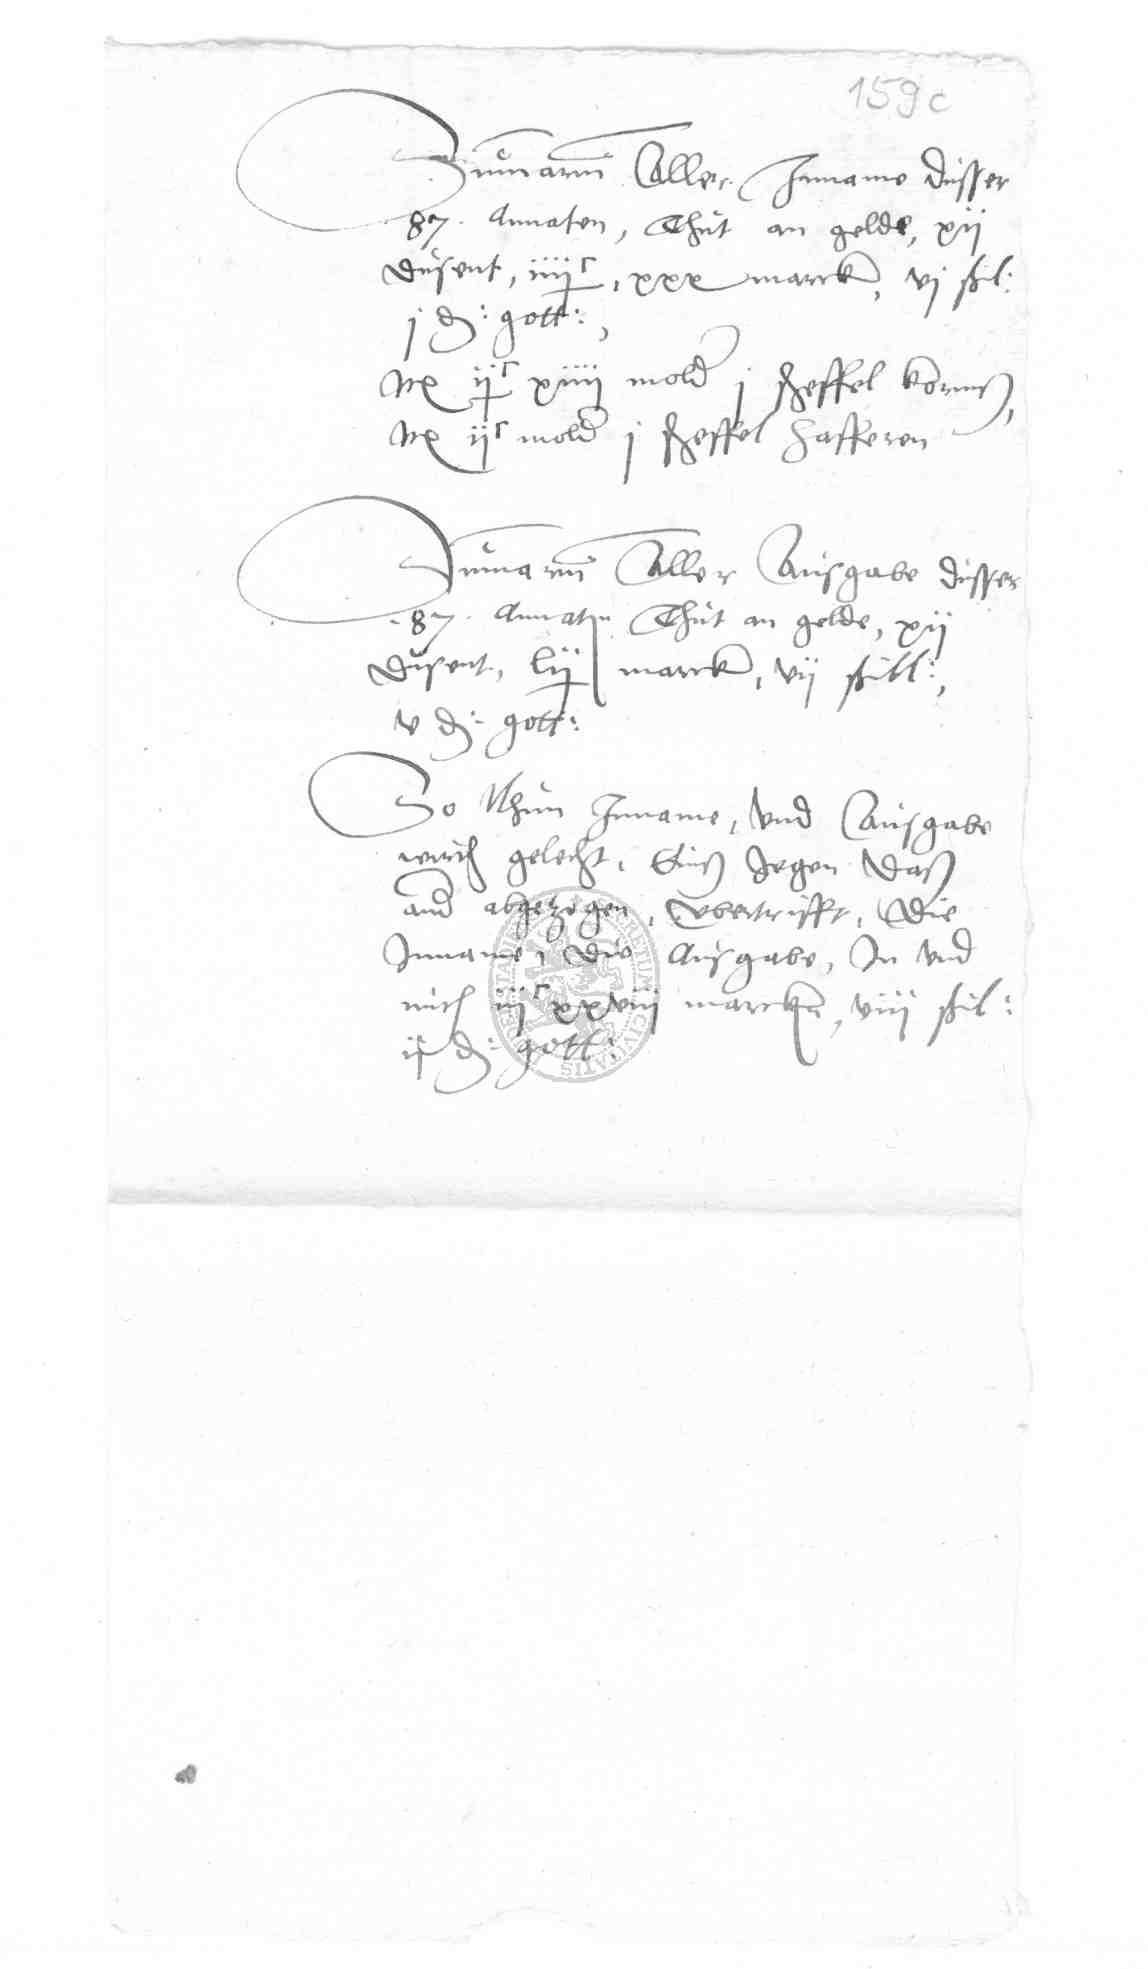 159c
Summarum Aller Inname disser
87. Annaten, Thut an gelde, xij
dusent, iiij c, xxx marck, vj schil:
j d: gott:,
Noch ij c xiiij mold j scheffel korns,
Noch ij c mold j scheffel Hafferen
Summarum Aller Ausgabe disser
.87. Annaten Thut an gelde, xij
dusent, lij marck, vij schill:,
v d: gott:
So Nhun Inname, Und Ausgabe
werth gelecht, Eins Jegen Daß
and abgetzogen, Ubertrifft, Die
Inname, Die Ausgabe, In Und
mith iij c xxviij marck, viij schil:
ij d: gott:
CIVITATIS